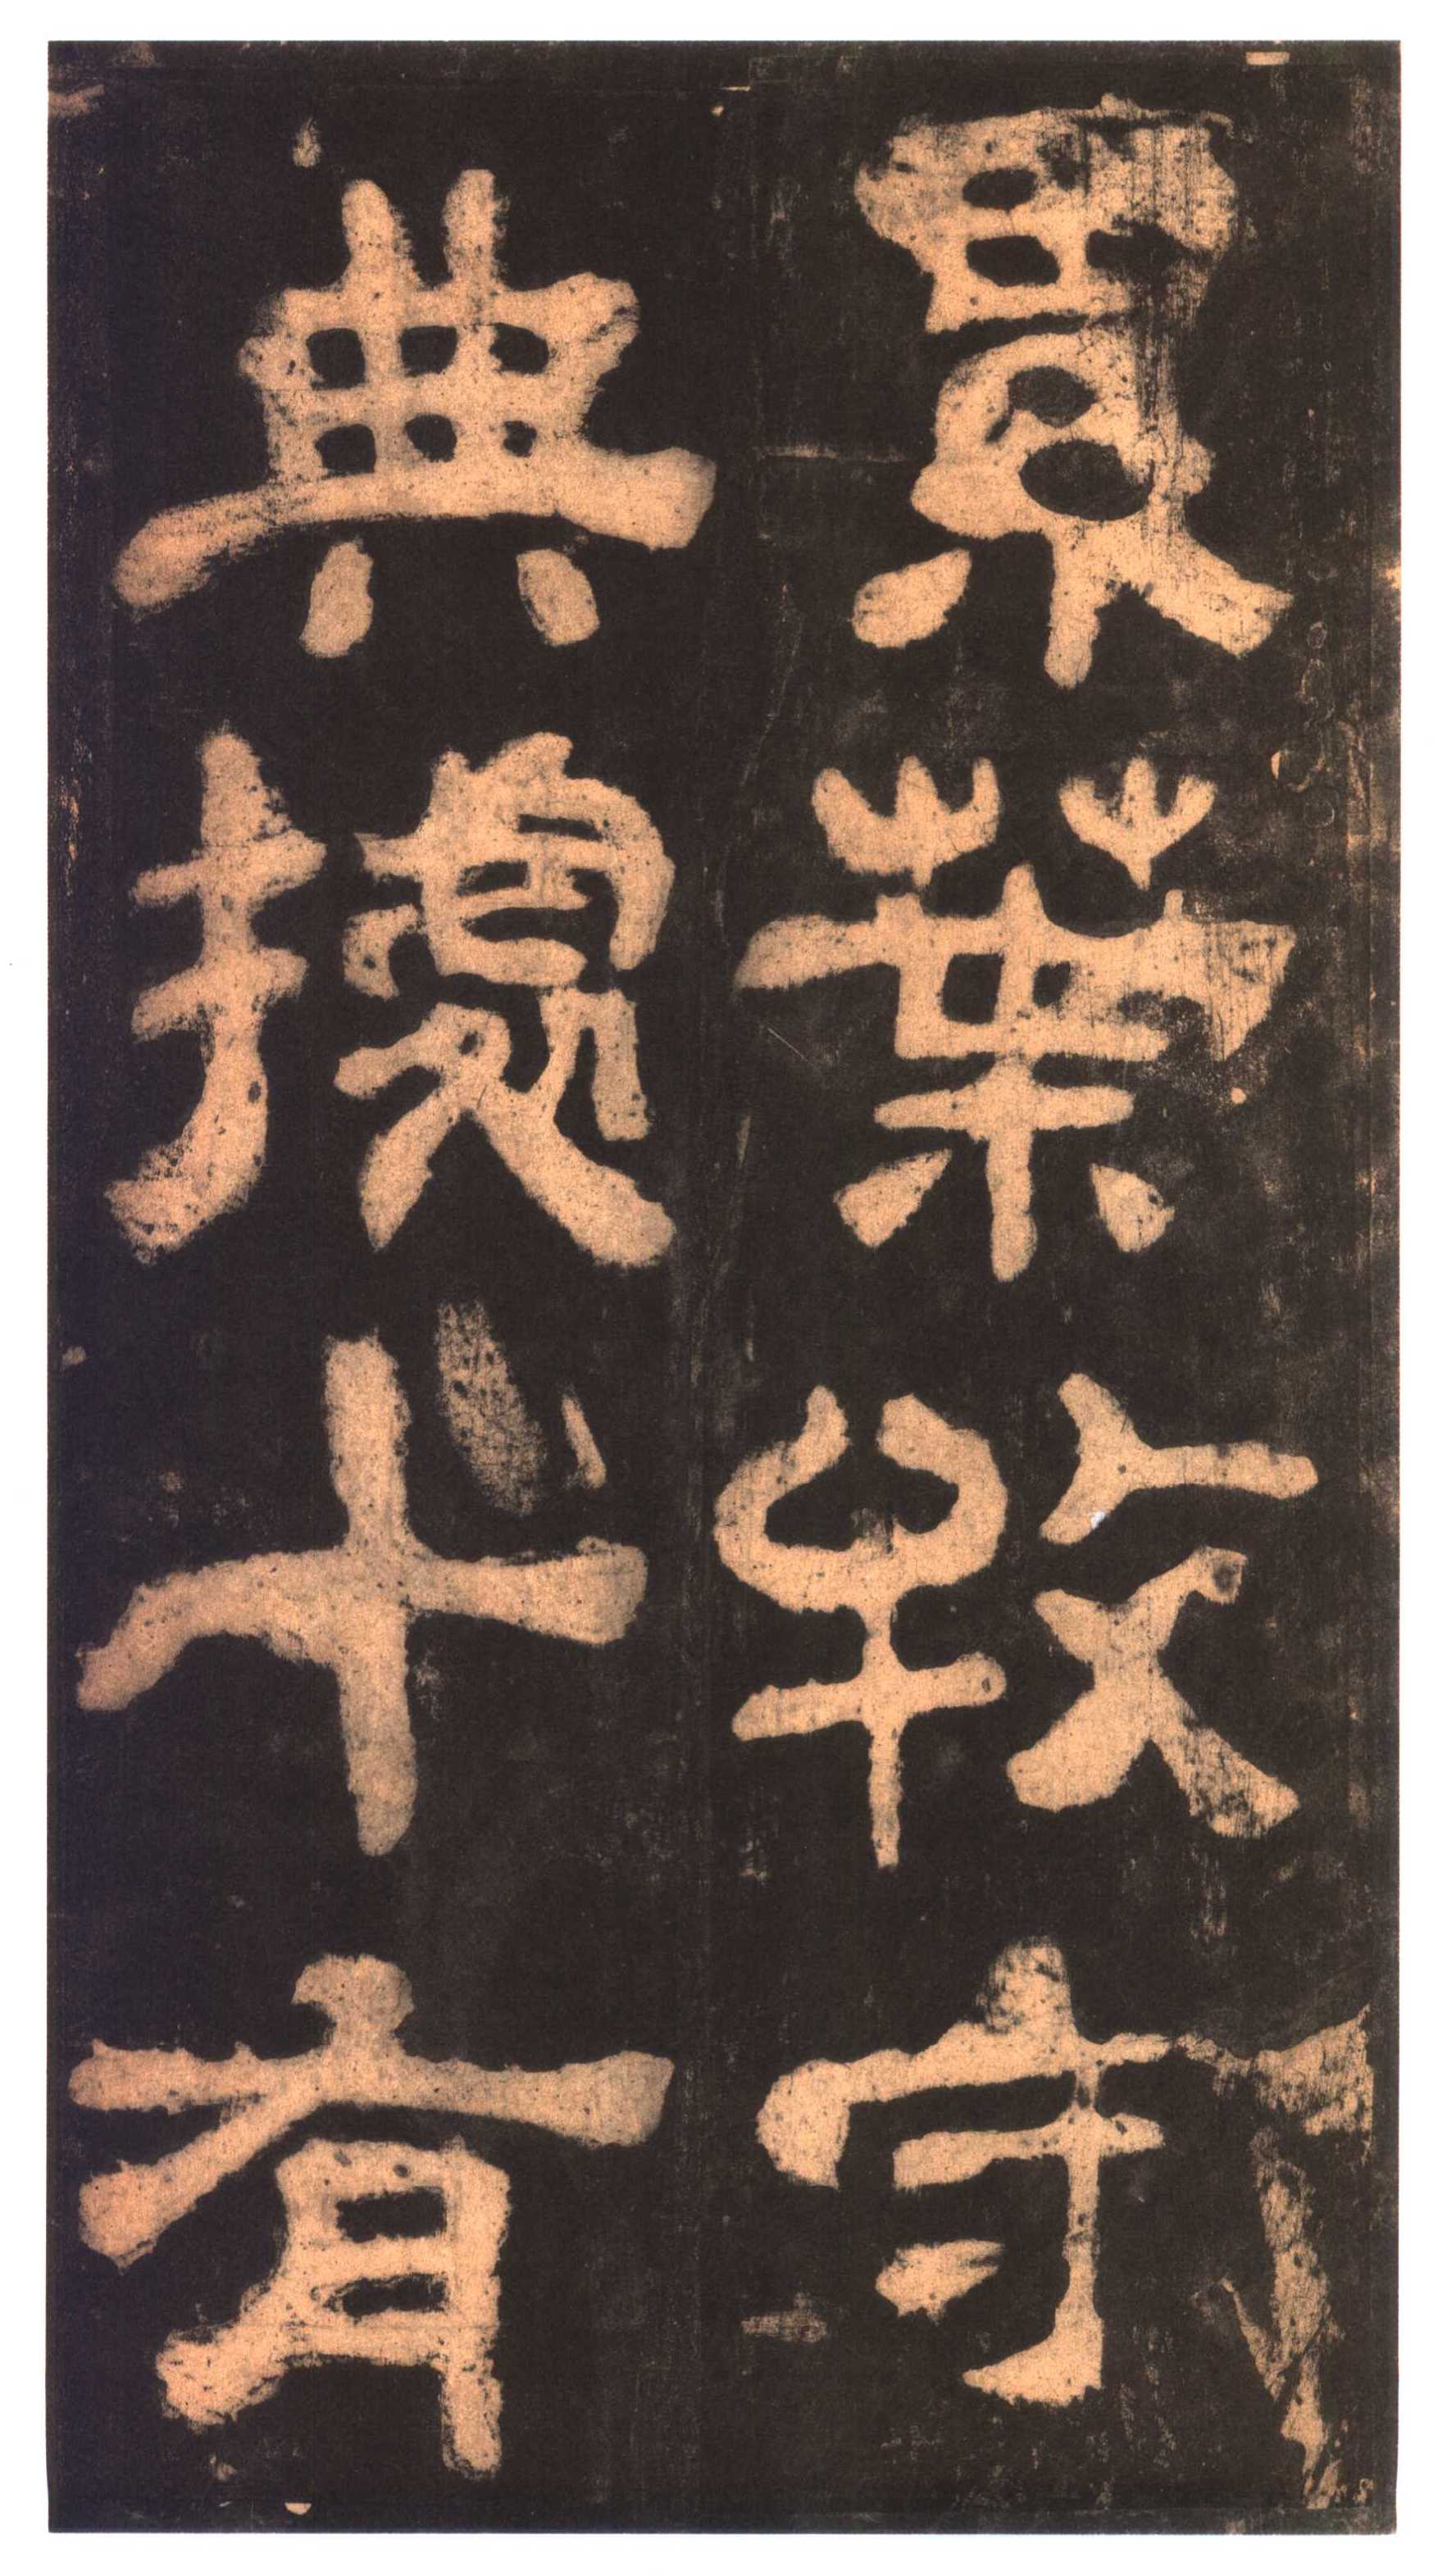 累葉牧守
典據十有